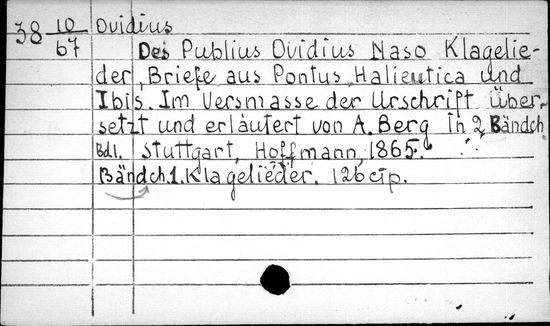 38 10/67 Ovidius
Des Publius Ovidius Naso Klagelie-
der, Briefe aus Pontus, Halieutica und
Ibis. Im Versmasse der Urschrift über-
setzt und erläutert von A. Berg in 2 Bändch
Bd1. Stuttgart, Hoffmann, 1865.
Bändch.1. Klagelieder. 126 стр.